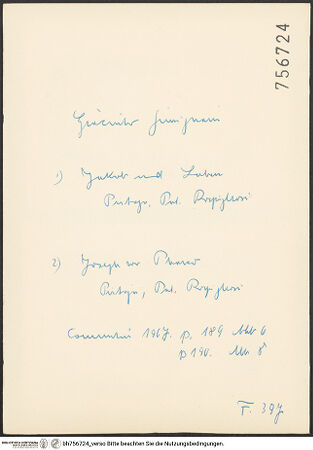 756724
Giacinto Gimignani
1) Jakob und Laban
Pistoja, Pal. Rospigliosi
2) Joseph vor Pharao
Pistoja, Pal. Rospigliosi
Commentari 1967. p. 189 Abb 6
p 190. Abb 8
F. 397
bh756724_verso Bitte beachten Sie die Nutzungsbedingungen.